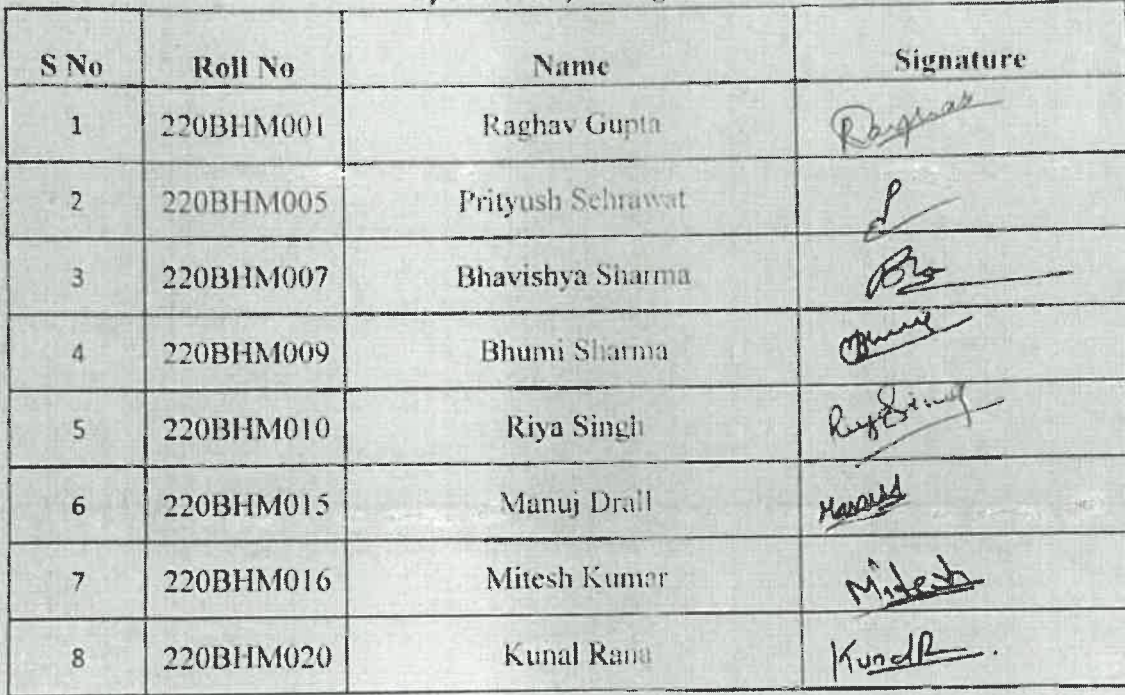 S No Roll No Name Signature
1 220BHM001 Raghav Gupta Raghav
2 220BHM005 Prityush Sehrawat
3 220BHM007 Bhavishya Sharma
4 220BHM009 Bhumi Sharma
5 220BHM010 Riya Singh Riya Singh
6 220BHM015 Manuj Drall
7 220BHM016 Mitesh Kumar Mitesh
8 220BHM020 Kunal Rana Kunal R